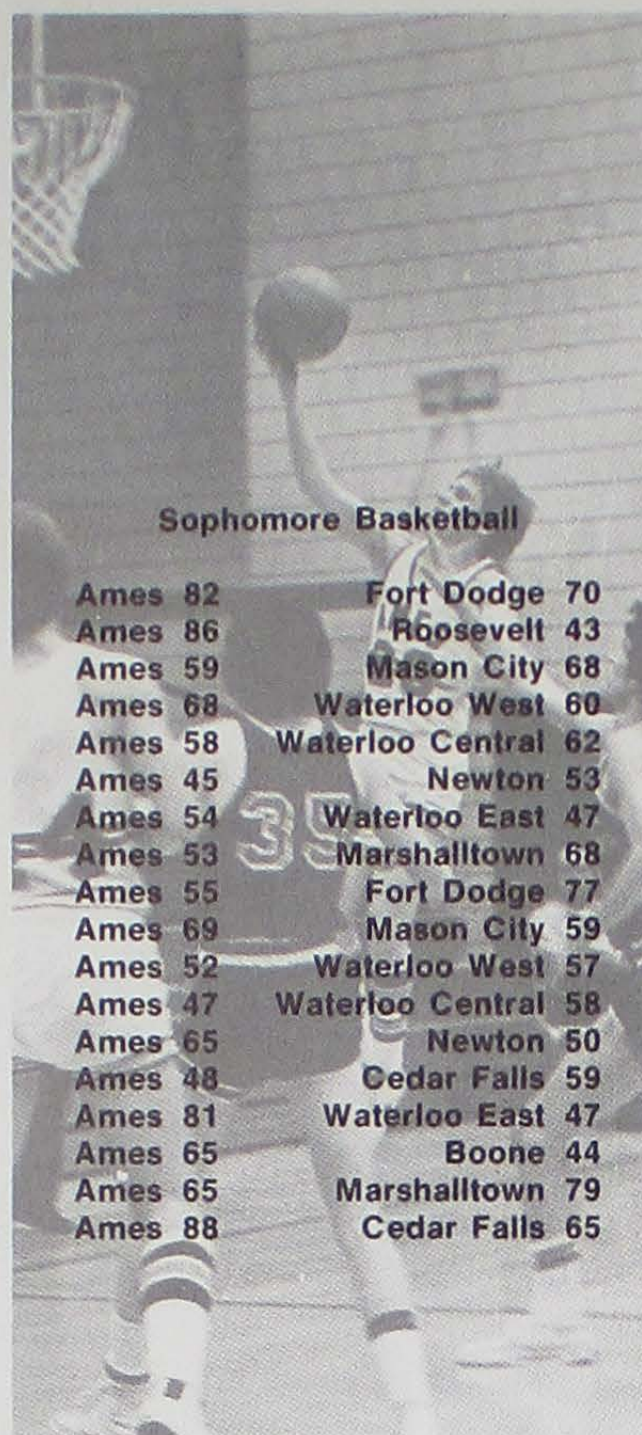 Sophomore Basketball
Ames 82 Fort Dodge 70
Ames 86 Roosevelt 43
Ames 59 Mason City 68
Ames 68 Waterloo West 60
Ames 58 Waterloo Central 62
Ames 45 Newton 53
Ames 54 Waterloo East 47
Ames 53 Marshalltown 68
Ames 55 Fort Dodge 77
Ames 69 Mason City 59
Ames 52 Waterloo West 57
Ames 47 Waterloo Central 58
Ames 65 Newton 50
Ames 48 Cedar Falls 59
Ames 81 Waterloo East 47
Ames 65 Boone 44
Ames 65 Marshalltown 79
Ames 88 Cedar Falls 65
35